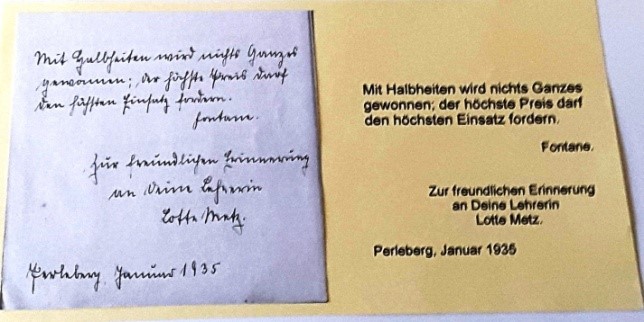 Mit Halbheiten wird nichts Ganzes
gewonnen; der höchste Preis darf
den höchsten Einsatz fordern.
Fontane.
Zur freundlichen Erinnerung
an Deine Lehrerin
Lotte Metz.
Perleberg, Januar 1935
Mit Halbheiten wird nichts Ganzes
gewonnen; der höchste Preis darf
den höchsten Einsatz fordern.
Fontane.
Zur freundlichen Erinnerung
an Deine Lehrerin
Lotte Metz.
Perleberg, Januar 1935